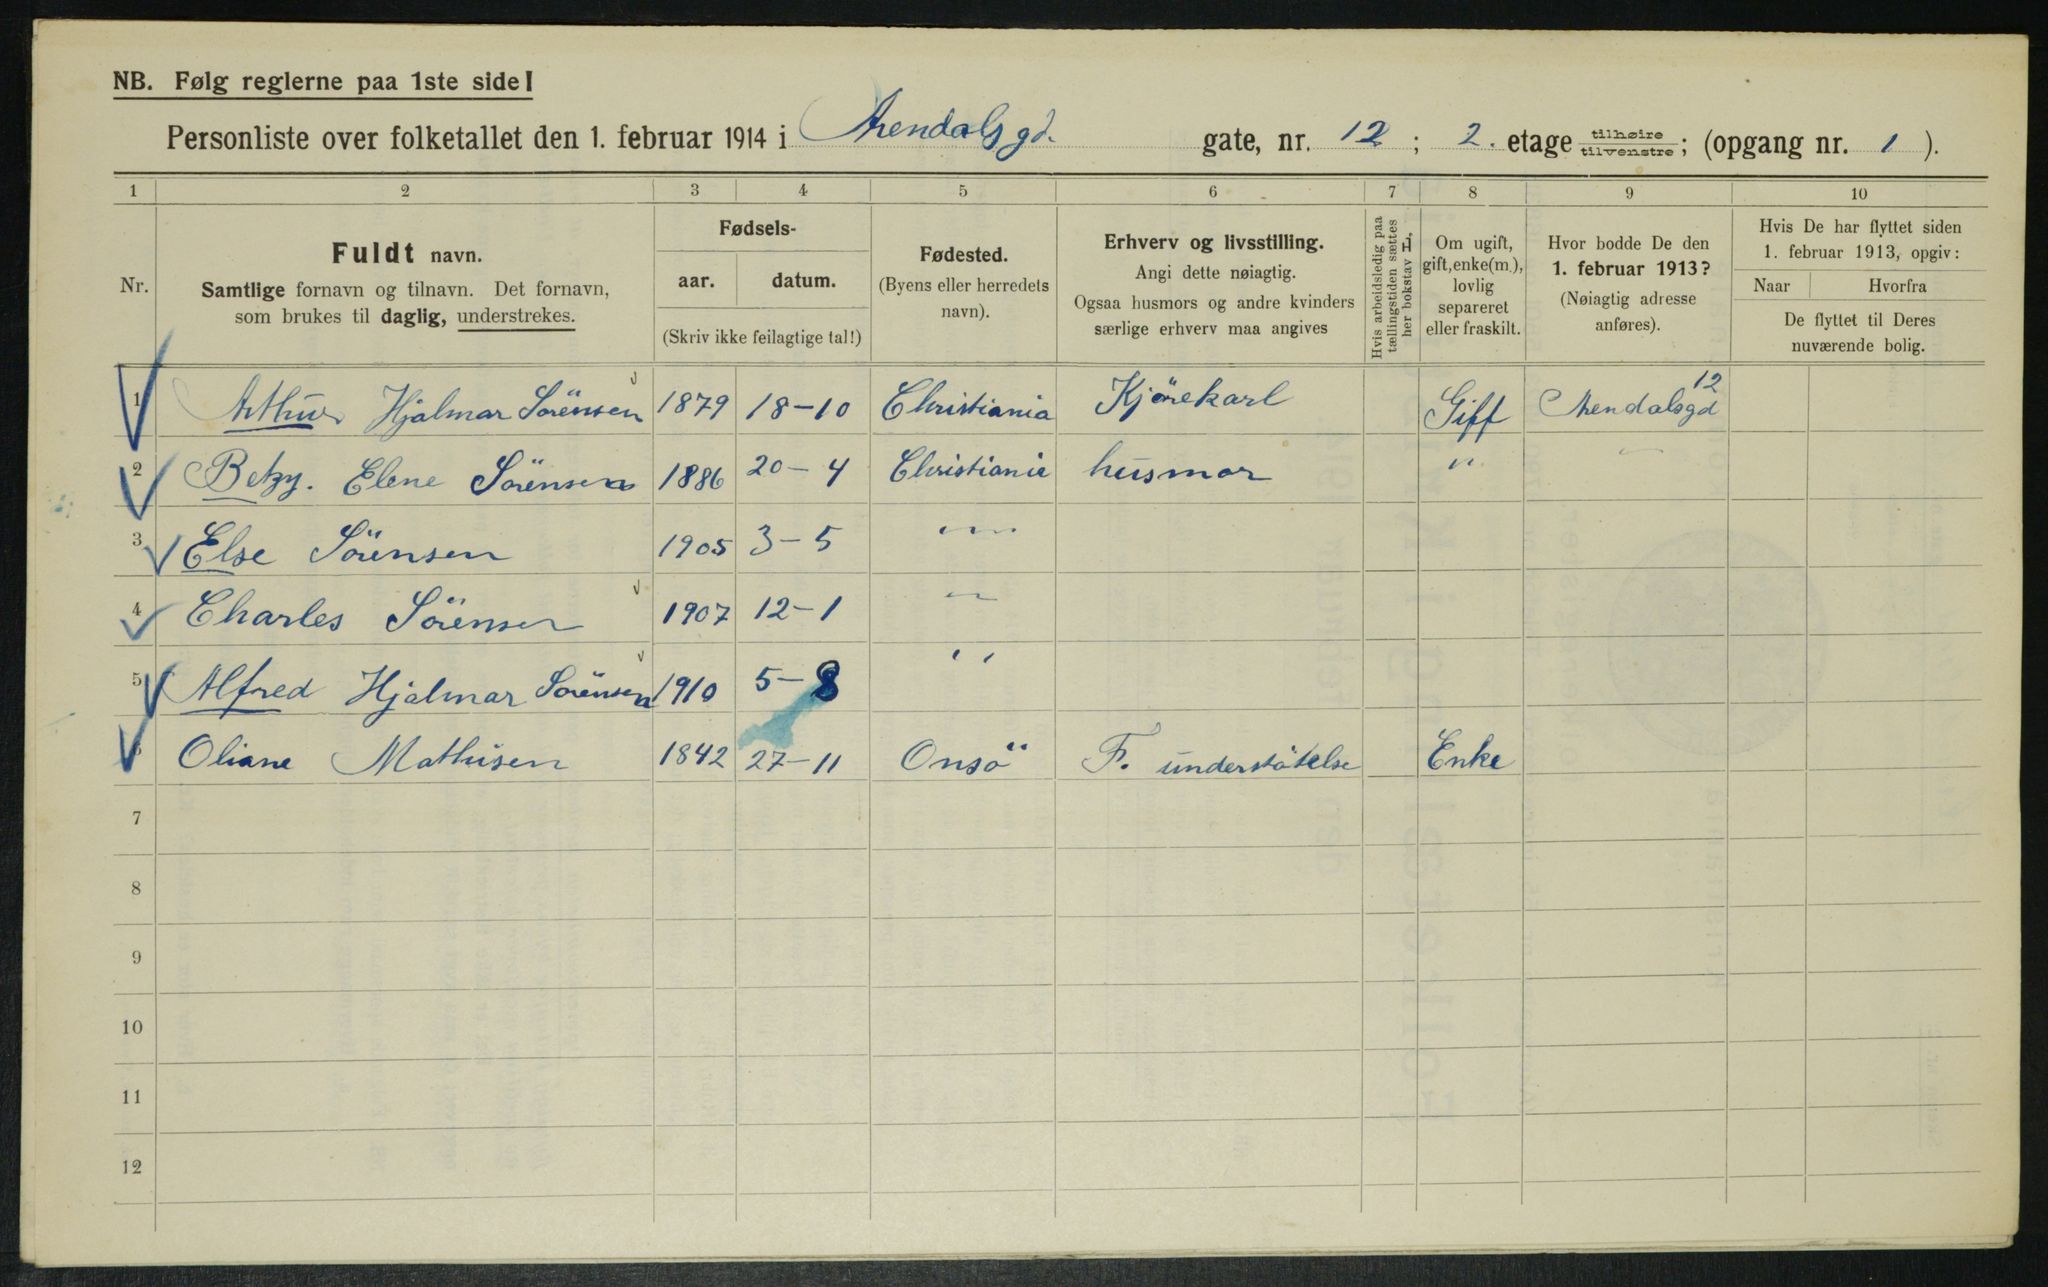 NB. Følg reglerne paa 1ste side!
Personliste over folketallet den 1. februar 1914 i Arendalsgd. gate, nr. 12 ; 2. etage tilhøire/tilvenstre; (opgang nr. 1 ).
1 2 3 4 5 6 7 8 9 10
Nr.
Fuldt navn.
Samtlige fornavn og tilnavn. Det fornavn,
som brukes til daglig, understrekes.
Fødsels-
aar. datum.
(Skriv ikke feilagtige tal!)
Fødested.
(Byens eller herredets
navn).
Erhverv og livsstilling.
Angi dette nøiagtig.
Ogsaa husmors og andre kvinders
særlige erhverv maa angives
Hvis arbeidsledig paa
tællingstiden sættes
her bokstav L.
Om ugift,
gift, enke(m.),
lovlig
separeret
eller fraskilt.
Hvor bodde De den
1. februar 1913?
(Nøiagtig adresse
anføres).
Hvis De har flyttet siden
1. februar 1913, opgiv:
Naar Hvorfra
De flyttet til Deres
nuværende bolig.
1 Arthur Hjalmar Sörensen 1879 18-10 Christiania Kjörekarl Gift Arendalsgd 12
2 Betzy. Elene Sörensen 1886 20-4 Christiania husmor " "
3 Else Sörensen 1905 3-5 "
4 Charles Sörensen 1907 12-1 "
5 Alfred Hjalmar Sörensen 1910 5-8 "
6 Oliane Mathisen 1842 27-11 Onsö F. understötelse Enke
7
8
9
10
11
12